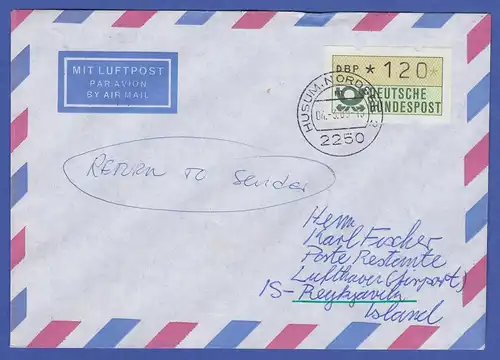 MIT LUFTPOST
PAR AVION
BY AIR MAIL
DBP *120*
DEUTSCHE
BUNDESPOST
HUSUM, NORDSEE 2
2250
RETURN TO Sender
Herrn
Karl Fischer
Poste Restante
Lufthaven (Airport)
IS-Reykjavik
Island